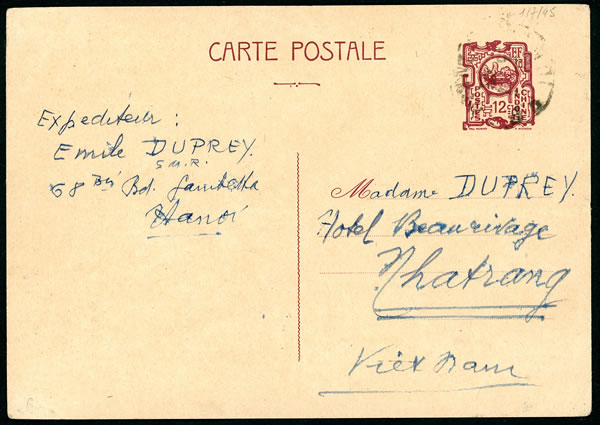 1/7/45
CARTE POSTALE
POSTES
INDO
CHINE
12
Expéditeur :
Emile DUPREY.
S.M.R.
68 Bis Bd. Gambetta
Hanoi
Madame DUPREY.
Hotel Beaurivage
Nhatrang
Viêt Nam